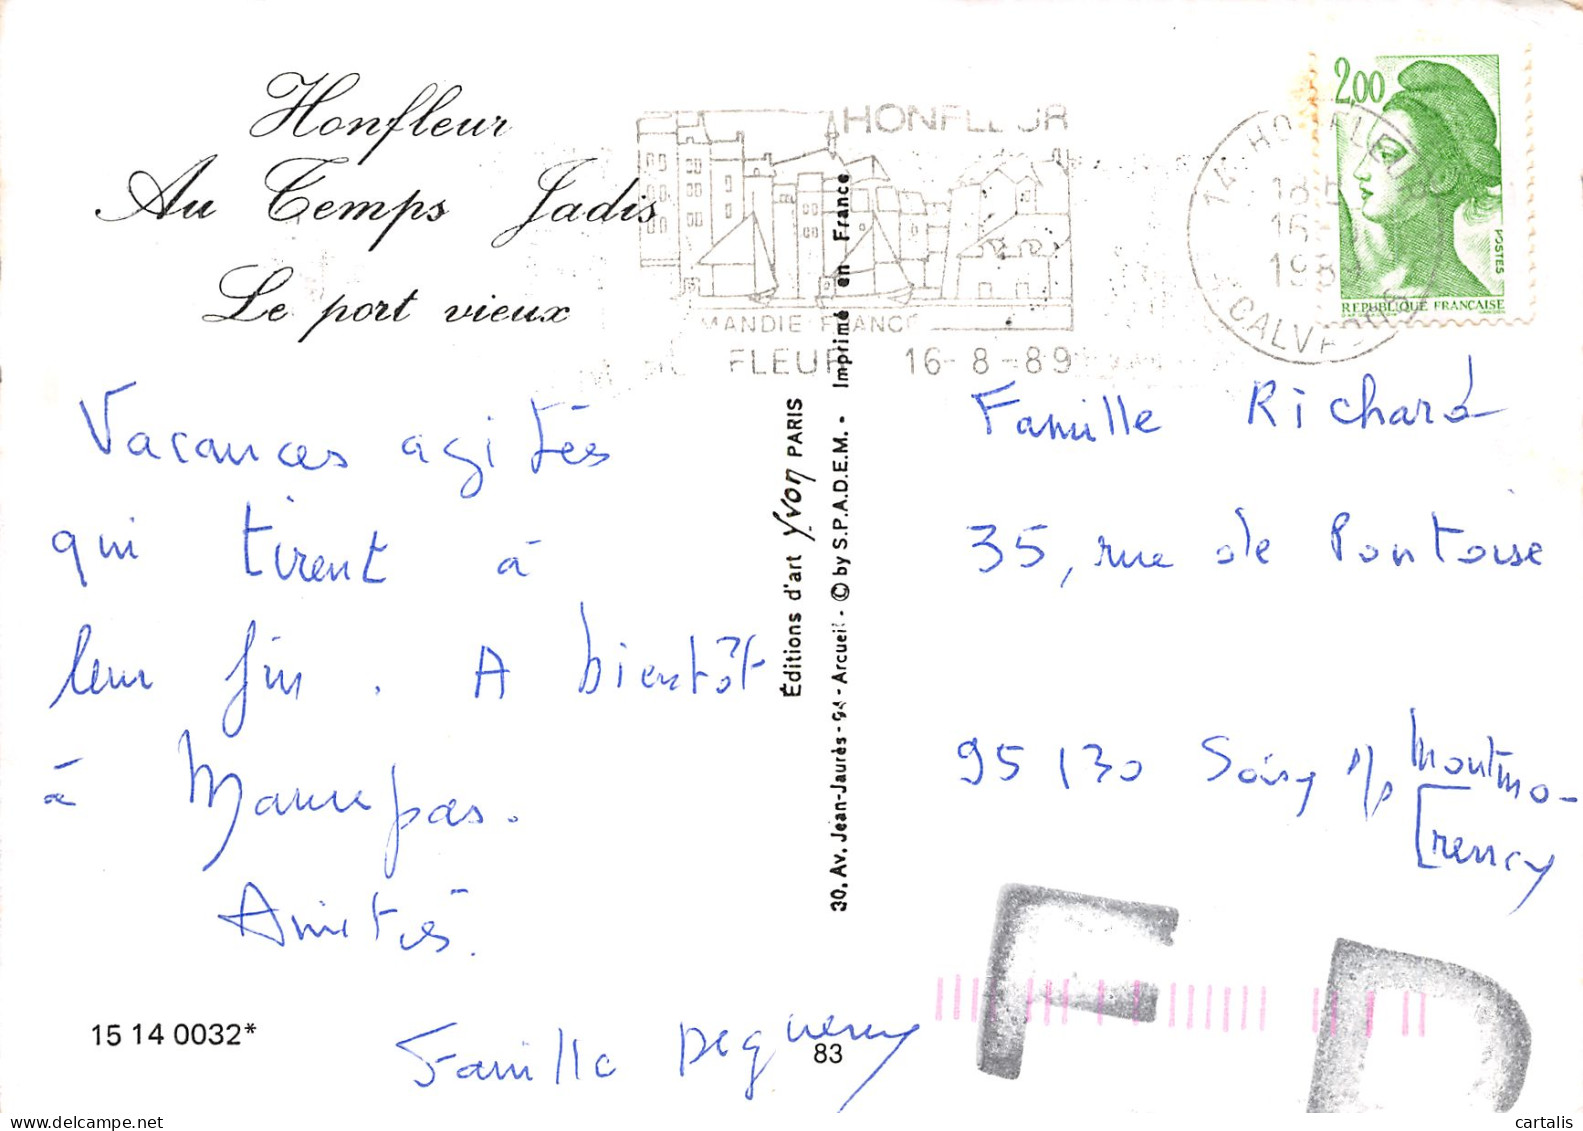 Honfleur
Au Temps Jadis
Le port vieux
HONFLEUR
MANDIE FRANCE
FLEUR 16-8-89
14 HONFLEUR
18H
16
1989
CALVADOS
2,00
POSTES
REPUBLIQUE FRANÇAISE
Vacances agitées
qui tirent à
leur fin. A bientôt
à Maurepas.
Amitiés.
Famille
15 14 0032*
83
Éditions d'art Yvon PARIS
30, Av. Jean-Jaurès - 94 - Arcueil - © by S.P.A.D.E.M. - Imprimé en France
Famille Richard
35, rue de Pontoise
95130 Soisy s/s Montmo-
rency
cartalis